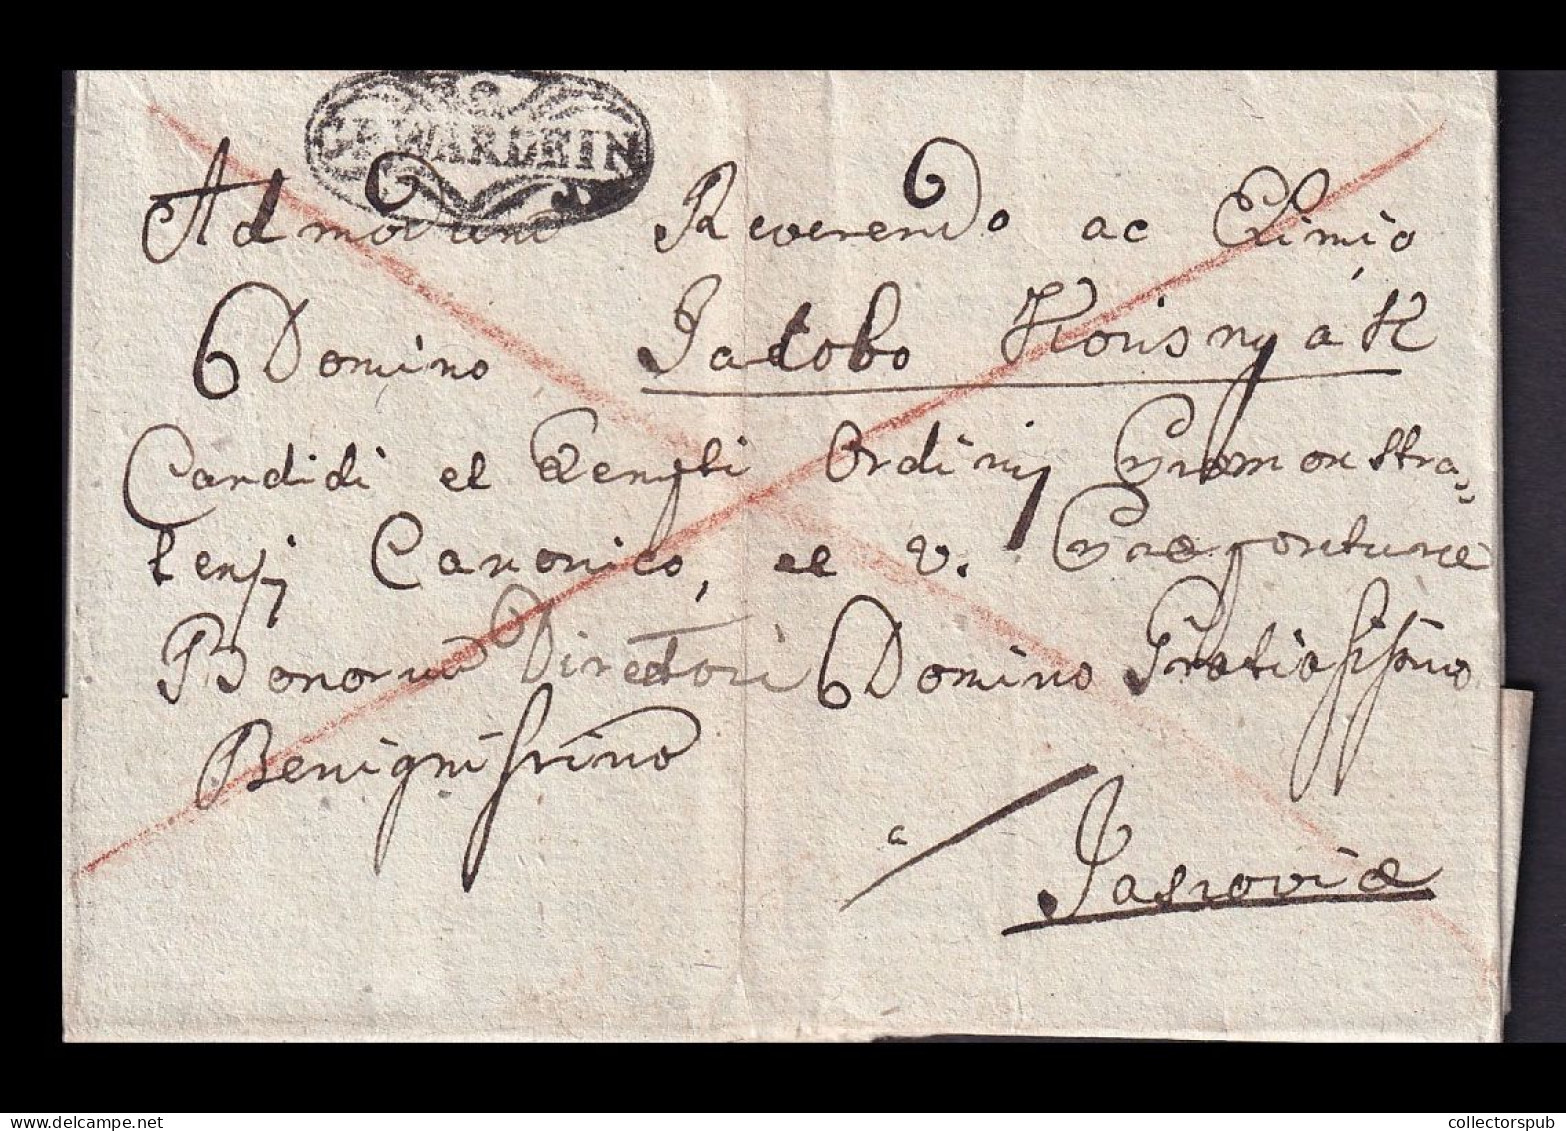 GR. WARDEIN
Admodum Reverendo ac Eximio
Domino Jacobo Korisnyák
Candidi et Exempti Ordinis Præmonstra=
tensis Canonico, et v. Præposituræ
Bonorum Directori Domino Gratiosissimo
Benignissimo
a
Jasroviæ
collectorspub